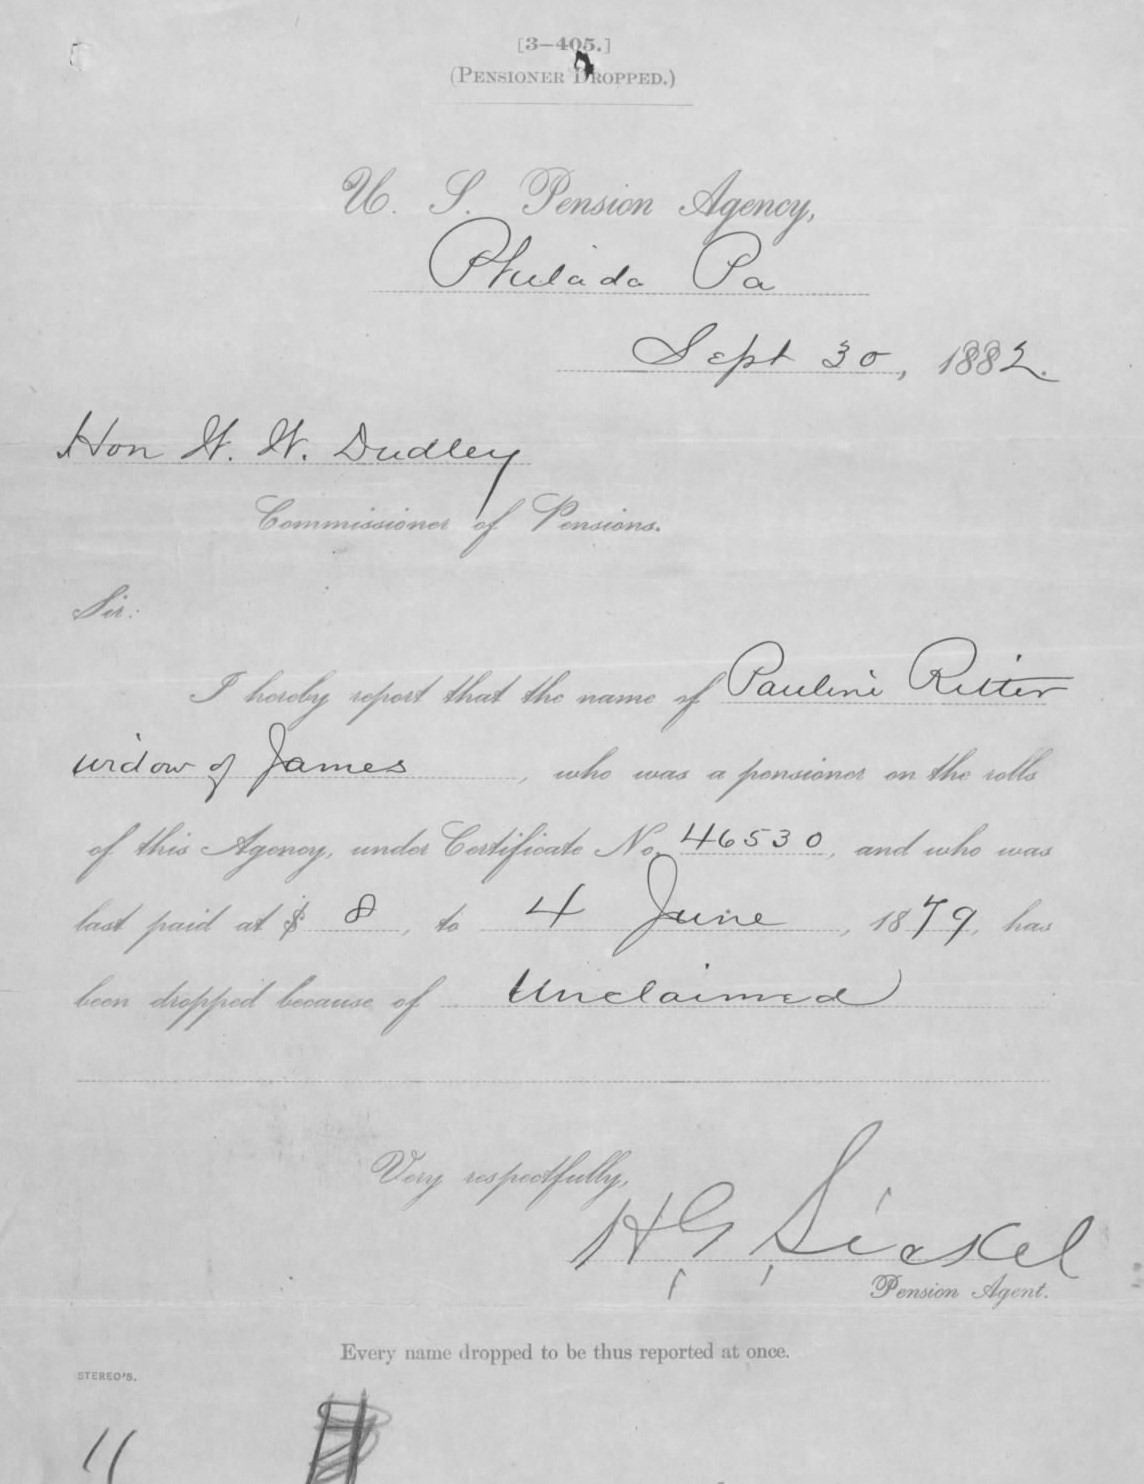 [3—405.]
(PENSIONER DROPPED.)
U. S. Pension Agency,
Philada Pa
Sept 30, 1882.
Hon W. W. Dudley
Commissioner of Pensions.
Sir:
I hereby report that the name of Pauline Ritter
widow of James, who was a pensioner on the rolls
of this Agency, under Certificate No. 46530, and who was
last paid at $ 8, to 4 June, 1879, has
been dropped because of Unclaimed
Very respectfully,
H G Sickel
Pension Agent.
Every name dropped to be thus reported at once.
STEREO'S.